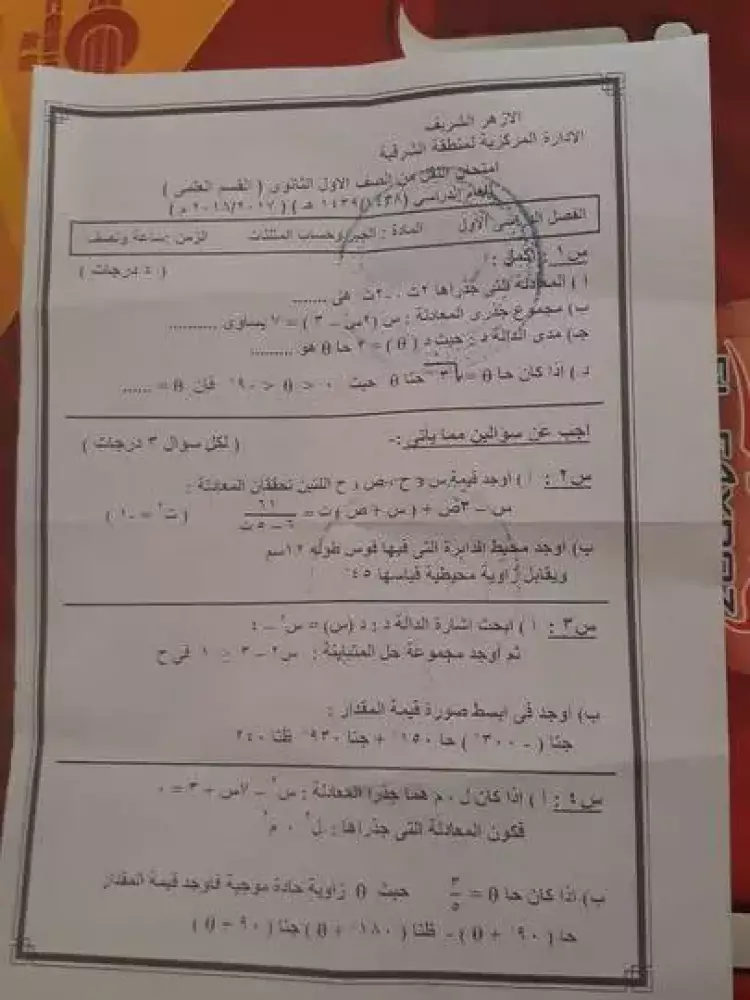 الازهر الشريف
الادارة المركزية لمنطقة الشرقية
امتحان النقل من الصف الاول الثانوى ( القسم العلمى )
للعام الدراسي (١٤٣٨/ ١٤٣٩ هـ ) ( ٢٠١٨/٢٠١٧ م )
الفصل الدراسى الأول المادة : الجبر وحساب المثلثات الزمن :ساعة ونصف
س١ : أكمل : ( ٤ درجات )
أ ) المعادلة التى جذراها ٢ت ، -٢ت هى .......
ب) مجموع جذرى المعادلة : س (٢س – ٣ ) = ٧ يساوى ..........
جـ) مدى الدالة د : حيث د ( θ ) = ٢ حا θ هو ..........
د ) اذا كان حا θ = √٣ جتا θ حيث ٠ < θ < ٩٠° فإن θ = ......
اجب عن سوالين مما يأتى :- ( لكل سوال ٣ درجات )
س٢ : أ ) أوجد قيمة س ، ص و ح اللتين تحققان المعادلة :
س – ٣ص + ( س + ص ) ت = ٦١ / ٦ – ٥ ت ( ت٢ = -١ )
ب) اوجد محيط الدايرة التى فيها قوس طوله ١٢سم
ويقابل زاوية محيطية قياسها ٤٥°
س٣ : أ ) ابحث اشارة الدالة د : د (س) = س٢ – ٤
ثم أوجد مجموعة حل المتباينة : س٢ – ٣ ≥ ١ فى ح
ب) اوجد فى ابسط صورة قيمة المقدار :
جتا ( - ٣٠٠° ) حا ١٥٠° + جتا ٩٣٠° ظتا ٢٤٠
س٤ : أ ) إذا كان ل ، م هما جذرا المعادلة : س٢ – ٧س + ٣ = ٠
فكون المعادلة التى جذراها : ل٢ ، م٢
ب) اذا كان حا θ = ٣ / ٥ حيث θ زاوية حادة موجبة فأوجد قيمة المقدار
حا ( ٩٠° + θ ) - ظتا ( ١٨٠° + θ ) جتا ( ٩٠ – θ )